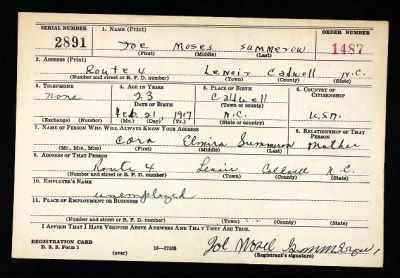 SERIAL NUMBER 1. NAME (Print) ORDER NUMBER
2891 Joe Moses Summerow 1487
(First) (Middle) (Last)
2. ADDRESS (Print)
Route 4 Lenoir Caldwell N.C.
(Number and street or R. F. D. number) (Town) (County) (State)
3. TELEPHONE 4. AGE IN YEARS 5. PLACE OF BIRTH 6. COUNTRY OF CITIZENSHIP
none 23 Caldwell
DATE OF BIRTH (Town or county)
Feb. 21 1917 N.C. U.S.A.
(Exchange) (Number) (Mo.) (Day) (Yr.) (State or country)
7. NAME OF PERSON WHO WILL ALWAYS KNOW YOUR ADDRESS 8. RELATIONSHIP OF THAT PERSON
Cora Elmira Summerow Mother
(Mr., Mrs., Miss) (First) (Middle) (Last)
9. ADDRESS OF THAT PERSON
Route 4 Lenoir Caldwell N.C.
(Number and street or R. F. D. number) (Town) (County) (State)
10. EMPLOYER'S NAME
unemployed
11. PLACE OF EMPLOYMENT OR BUSINESS
(Number and street or R. F. D. number) (Town) (County) (State)
I AFFIRM THAT I HAVE VERIFIED ABOVE ANSWERS AND THAT THEY ARE TRUE.
REGISTRATION CARD
D. S. S. Form 1 16—17105 Joe Moses Summerow
(Registrant's signature)